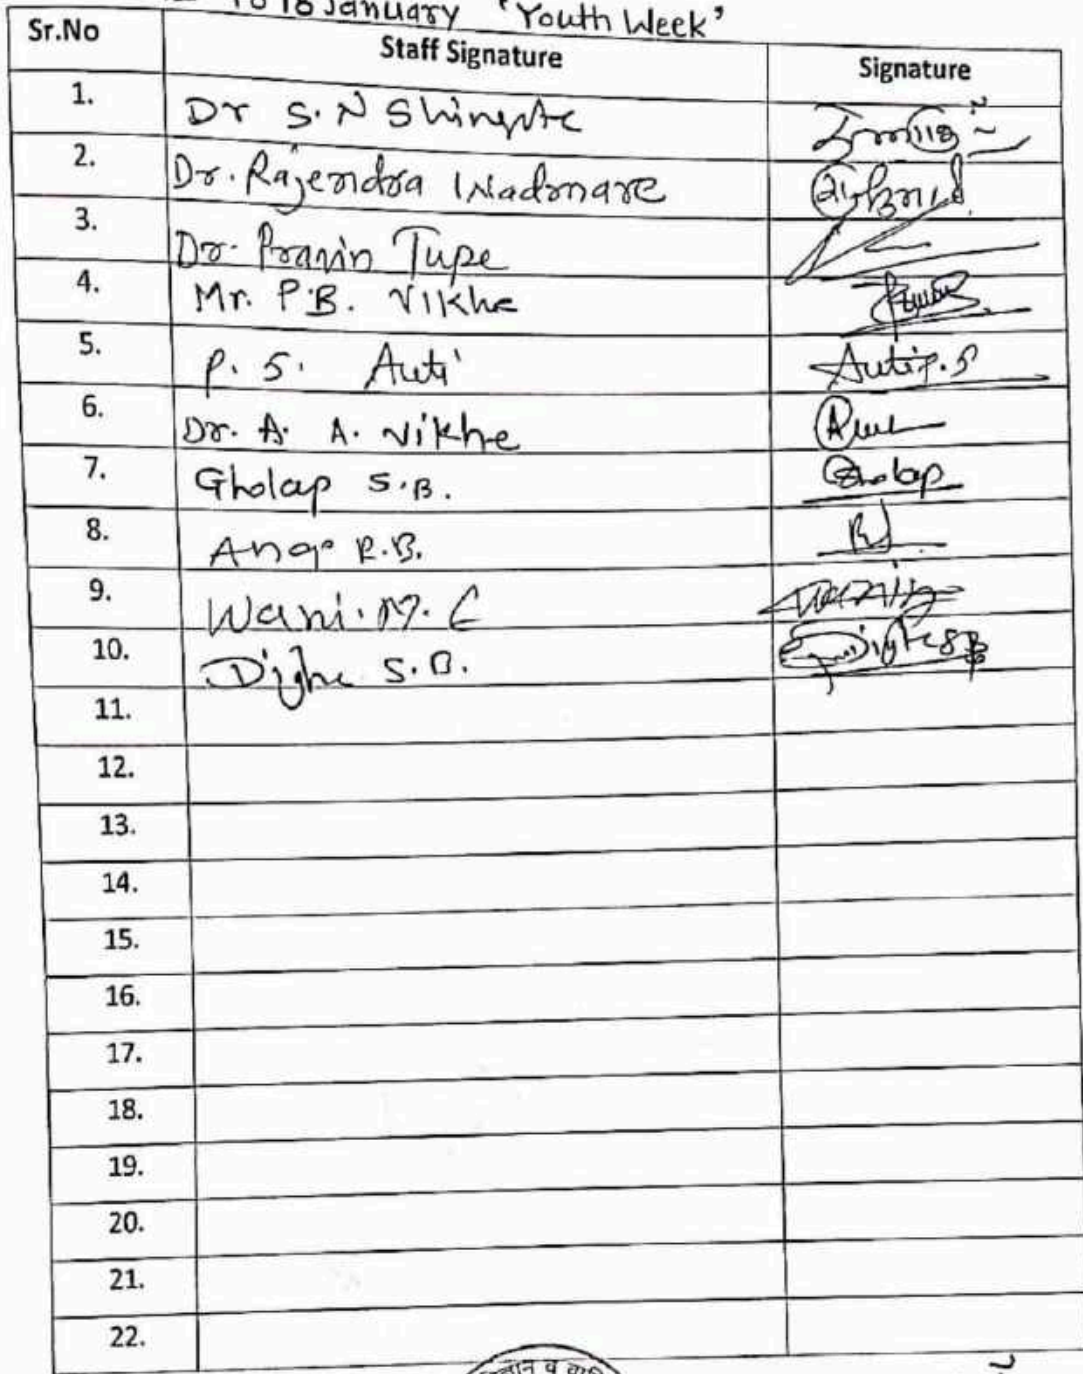 to 18 January 'Youth Week'
Sr.No Staff Signature Signature
1. Dr S.N Shingote
2. Dr. Rajendra Wadmare
3. Dr. Pravin Tupe
4. Mr. P.B. Vikhe
5. P. S. Auti Auti P.S
6. Dr. A. A. Vikhe
7. Gholap S.B. Gholap
8. Anap R.B.
9. Wani. M. C
10. Dighe S.B. Dighe SB
11.
12.
13.
14.
15.
16.
17.
18.
19.
20.
21.
22.